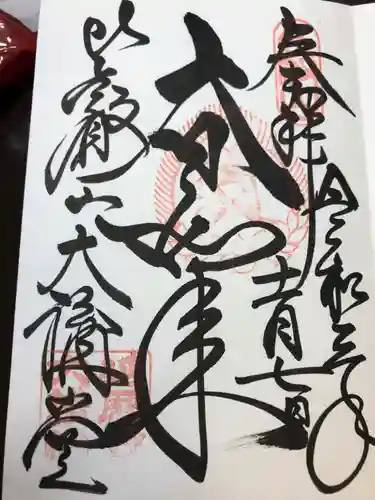 奉拝
令和三年
十一月七日
大日如来
比叡山大講堂